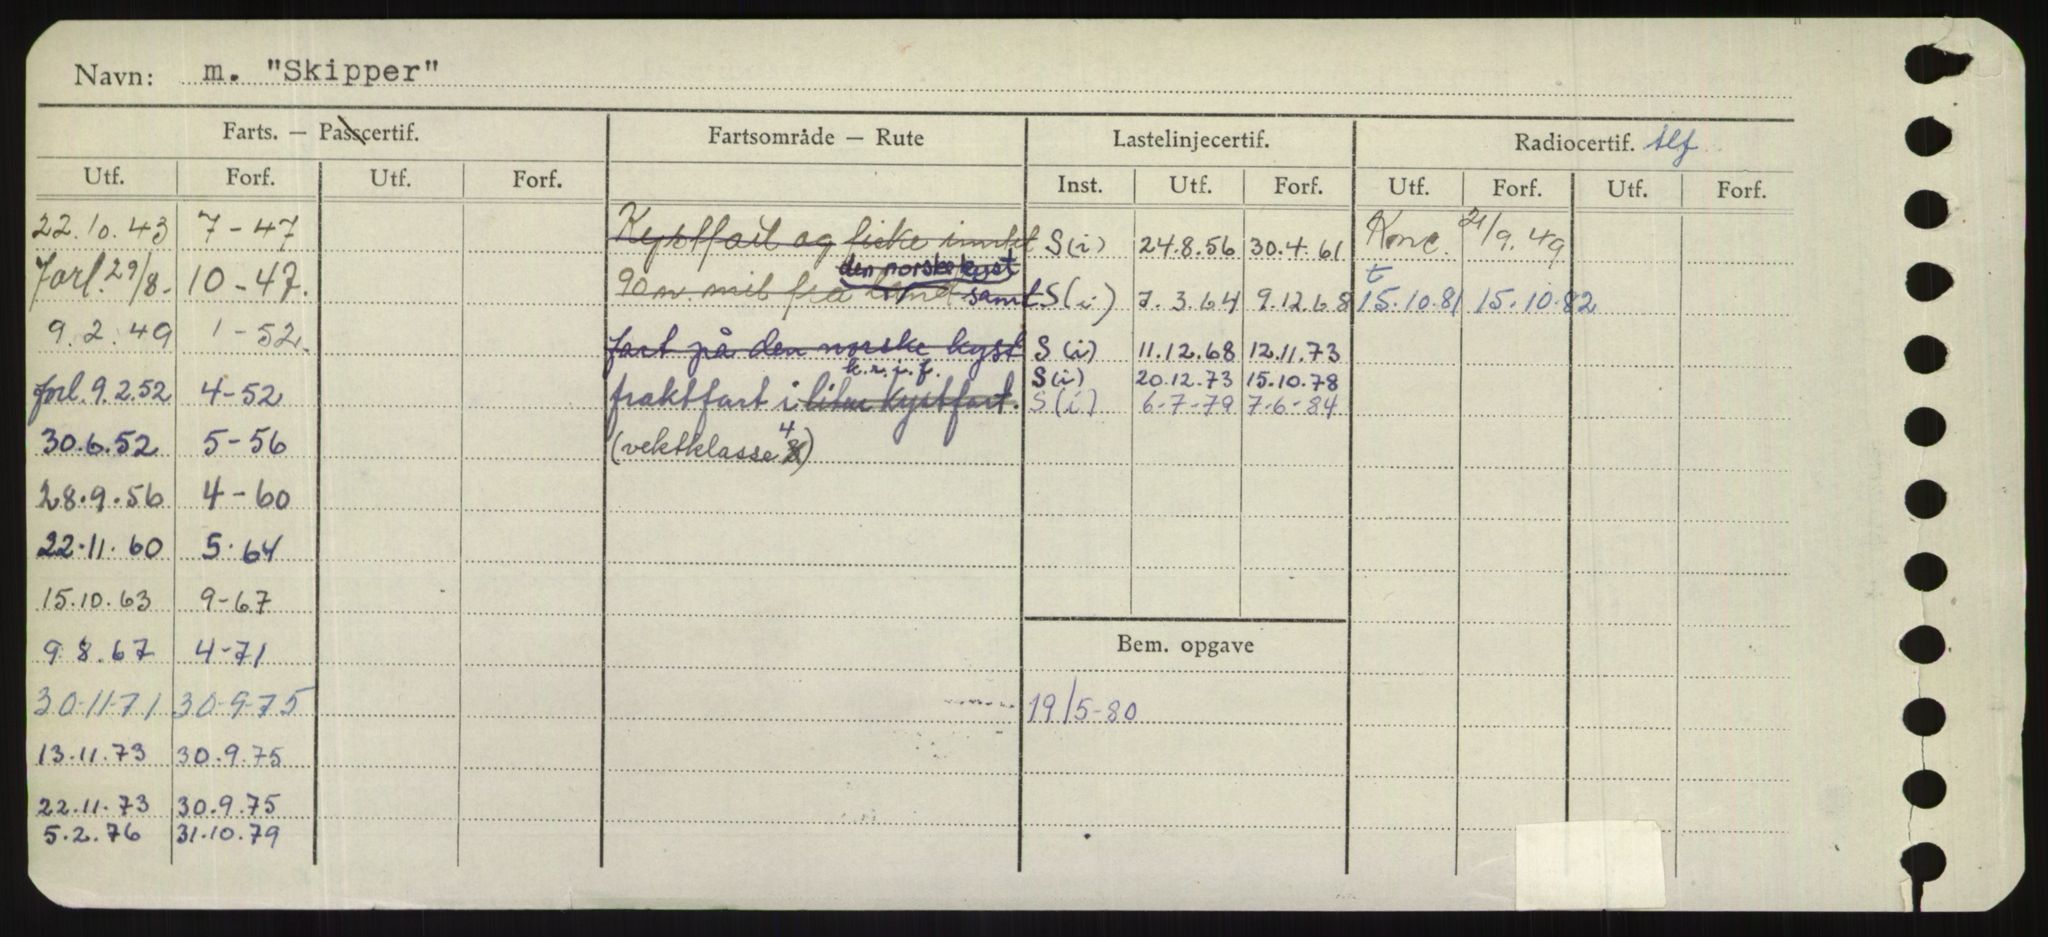 Navn: m. "Skipper"
Farts. — Passcertif. Fartsområde — Rute Lastelinjecertif. Radiocertif. tlf
Utf. Forf. Utf. Forf. Inst. Utf. Forf. Utf. Forf. Utf. Forf.
22.10.43 7-47 Kystfart og fiske inntil S(i) 24.8.56 30.4.61 Konc. 21/9.49
den norske kyst t
Forl. 29/8- 10-47. 90 n. mil fra land samt S(i) 7.3.64 9.12.68 15.10.81 15.10.82
9.2.49 1-52. fart på den norske kyst S(i) 11.12.68 12.11.73
k.r.i.f. S(i) 20.12.73 15.10.78
forl. 9.2.52 4-52 fraktfart i liten kystfart. S(i) 6-7-79 7-6-84
30.6.52 5-56 (vektklasse 4)
28.9.56 4-60
22.11.60 5.64
15.10.63 9-67
9.8.67 4-71 Bem. opgave
30-11-71 30-9-75 19/5-80
13.11.73 30.9.75
22.11.73 30.9.75
5.2.76 31.10.79